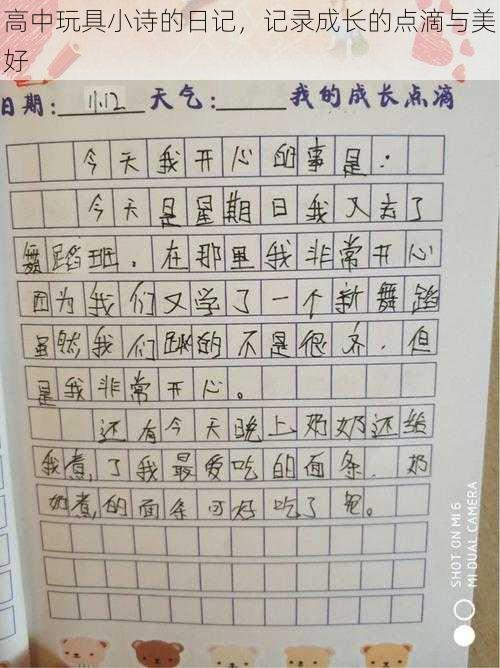 高中玩具小诗的日记，记录成长的点滴与美
好
日期：11.12 天气： 我的成长点滴
今天我开心的事是：
今天是星期日我又去了
舞蹈班。在那里我非常开心
因为我们又学了一个新舞蹈
虽然我们跳的不是很齐，但
是我非常开心。
还有今天晚上奶奶还给
我煮了我最爱吃的面条，奶
奶煮的面条可好吃了
SHOT ON MI 6
MI DUAL CAMERA